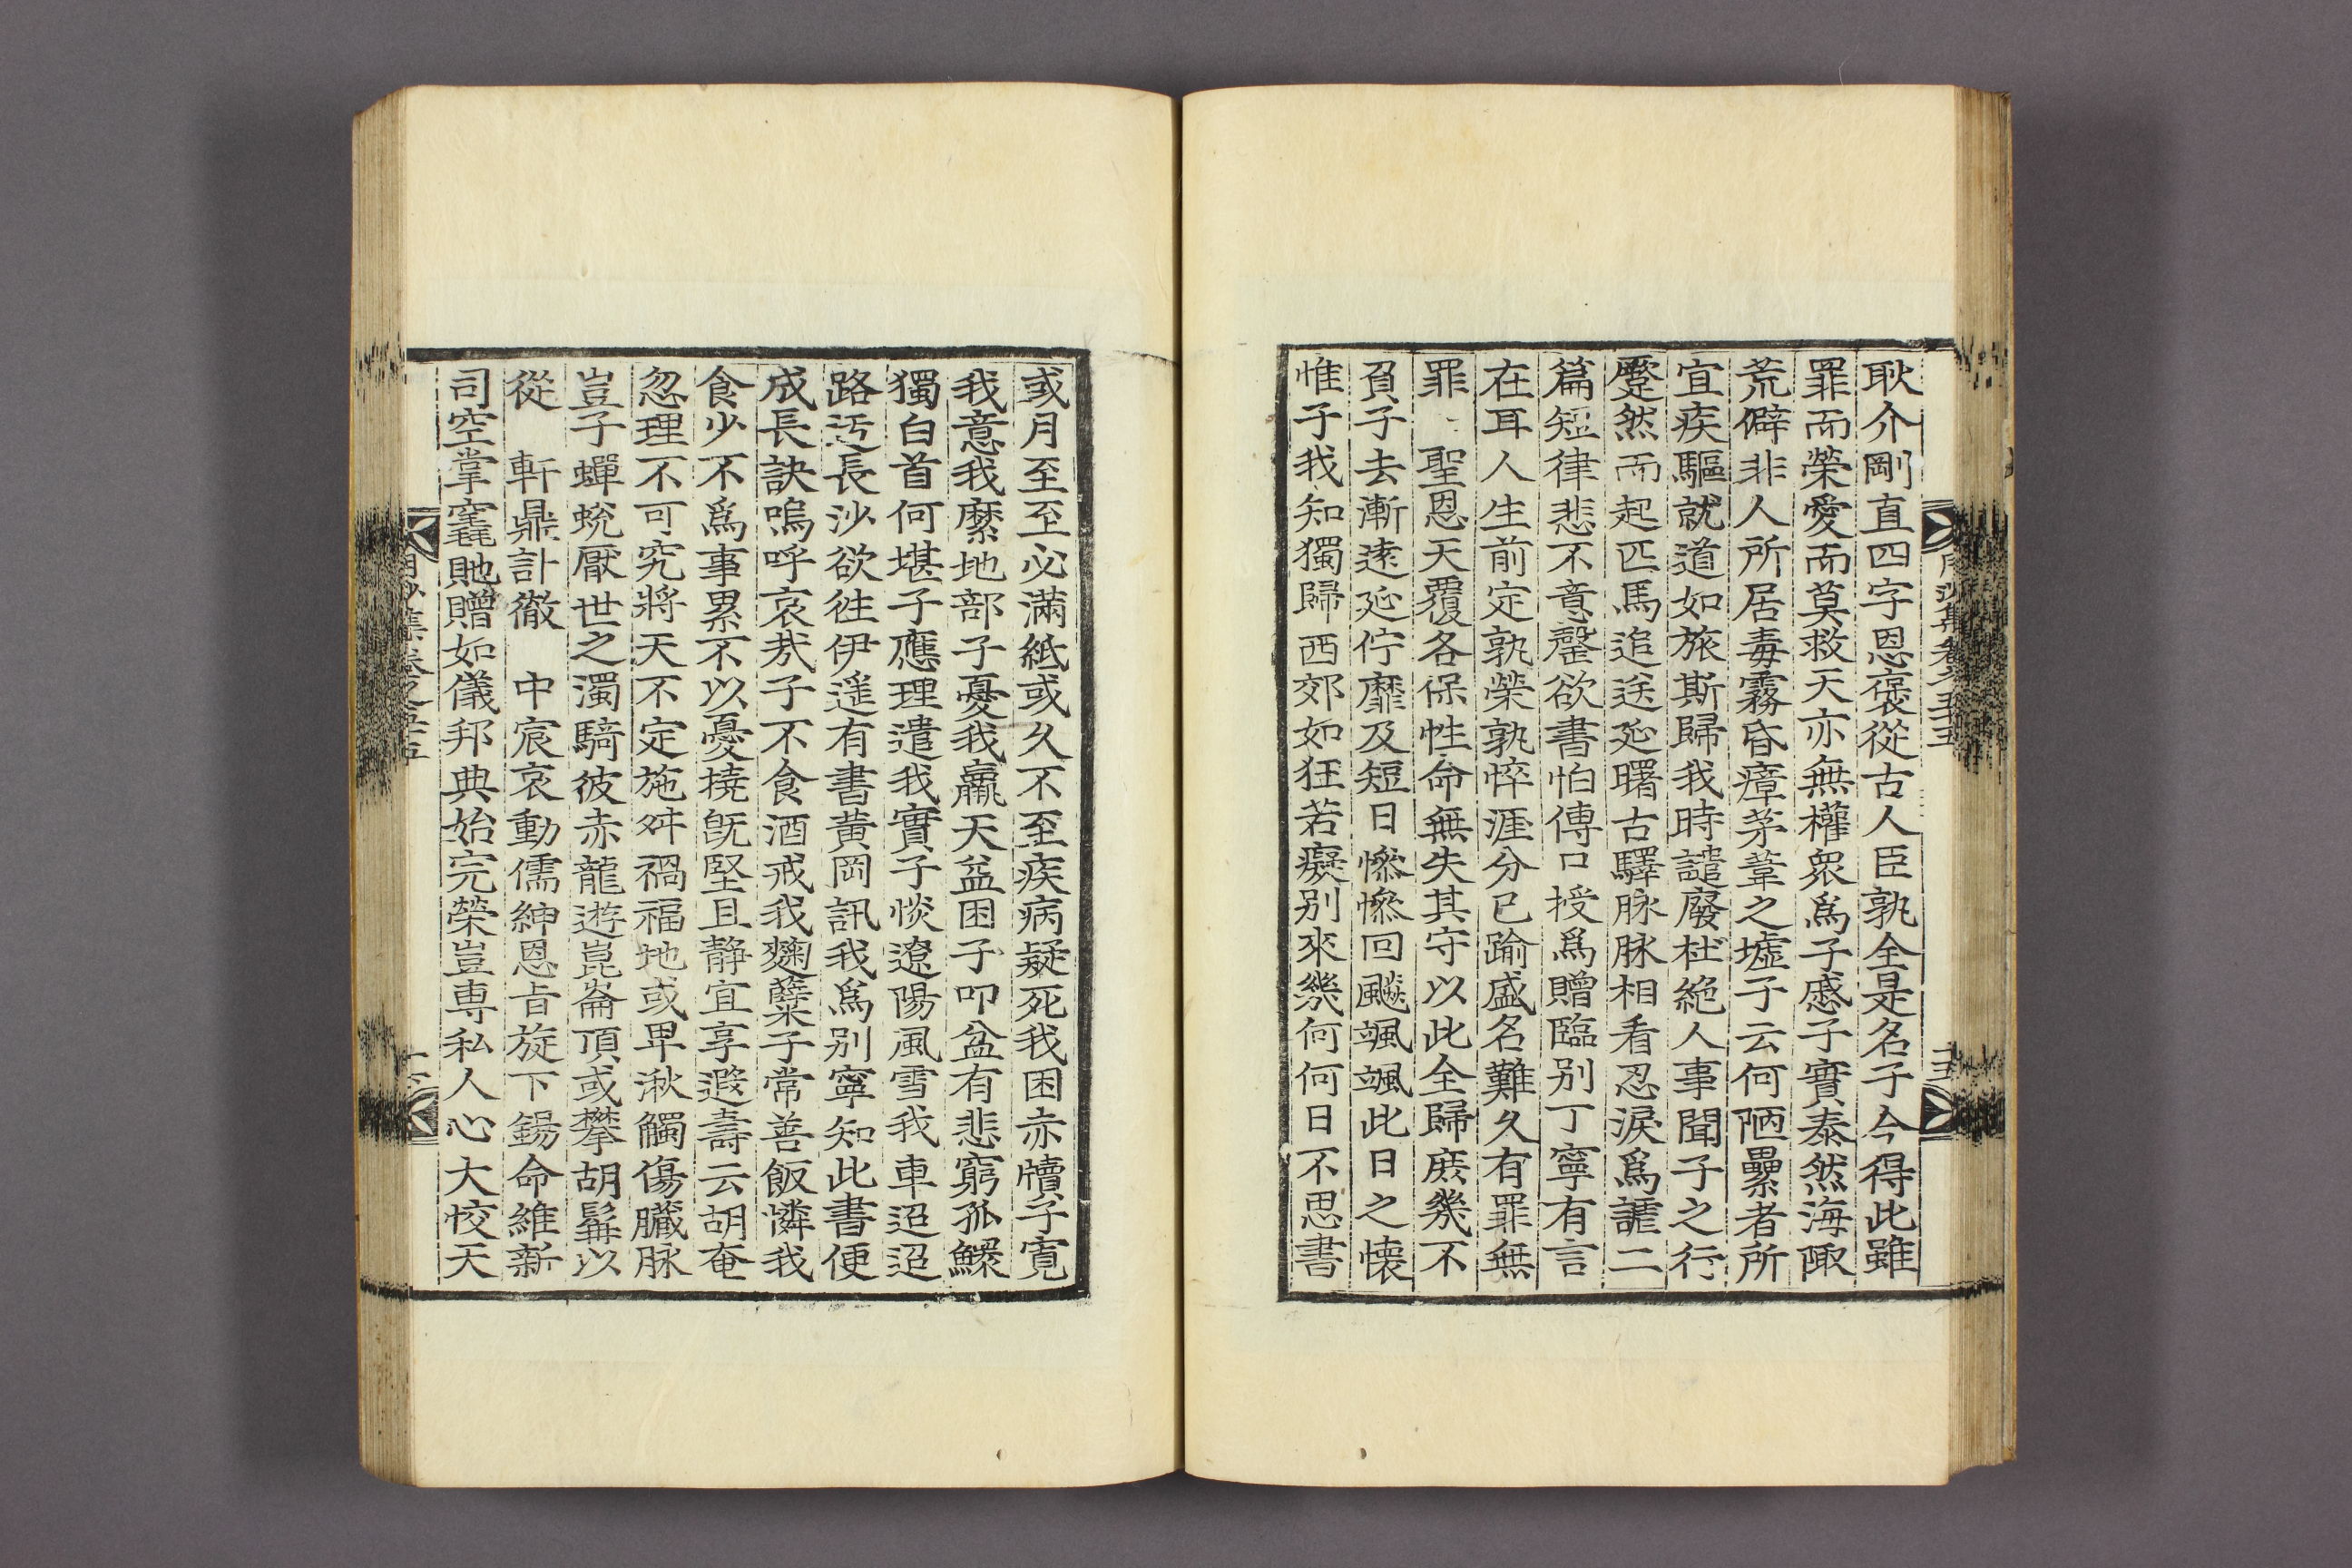 耿介剛直四字恩褒從古人臣孰全是名子今得此雖
罪而榮愛而莫救天亦無權衆爲子慼子實泰然海陬
荒僻非人所居毒霧昏瘴茅葦之墟子云何陋纍者所
宜疾驅就道如旅斯歸我時譴廢杜絶人事聞子之行
蹷然而起匹馬追送延曙古驛脉脉相看忍淚爲謔二
篇短律悲不意罄欲書怕傳口授爲贈臨别丁寧有言
在耳人生前定孰榮孰悴涯分已踰盛名難久有罪無
罪 聖恩天覆各保性命無失其守以此全歸庶幾不
負子去漸遠延佇靡及短日慘慘回飈颯颯此日之懐
惟子我知獨歸西郊如狂若癡别來幾何何日不思書
或月至至必滿紙或久不至疾病疑死我困赤牘子寬
我意我縻地部子憂我羸天益困子叩盆有悲窮孤鰥
獨白首何堪子應理遣我實子惔遼陽風雪我車迢迢
路迃長沙欲徃伊遥有書黄岡訊我爲别寧知此書便
成長訣嗚呼哀哉子不食酒戒我麴糵子常善飯憐我
食少不爲事累不以憂撓旣堅且静宜享遐壽云胡奄
忽理不可究將天不定施舛禍福地或卑湫觸傷臟脉
豈子蟬蛻厭世之濁騎彼赤龍遊崑崙頂或攀胡髯以
從 軒鼎計徹 中宸哀動儒紳恩旨旋下錫命維新
司空掌窀貤贈如儀邦典始完榮豈專私人心大恔天
月沙集卷之五十五